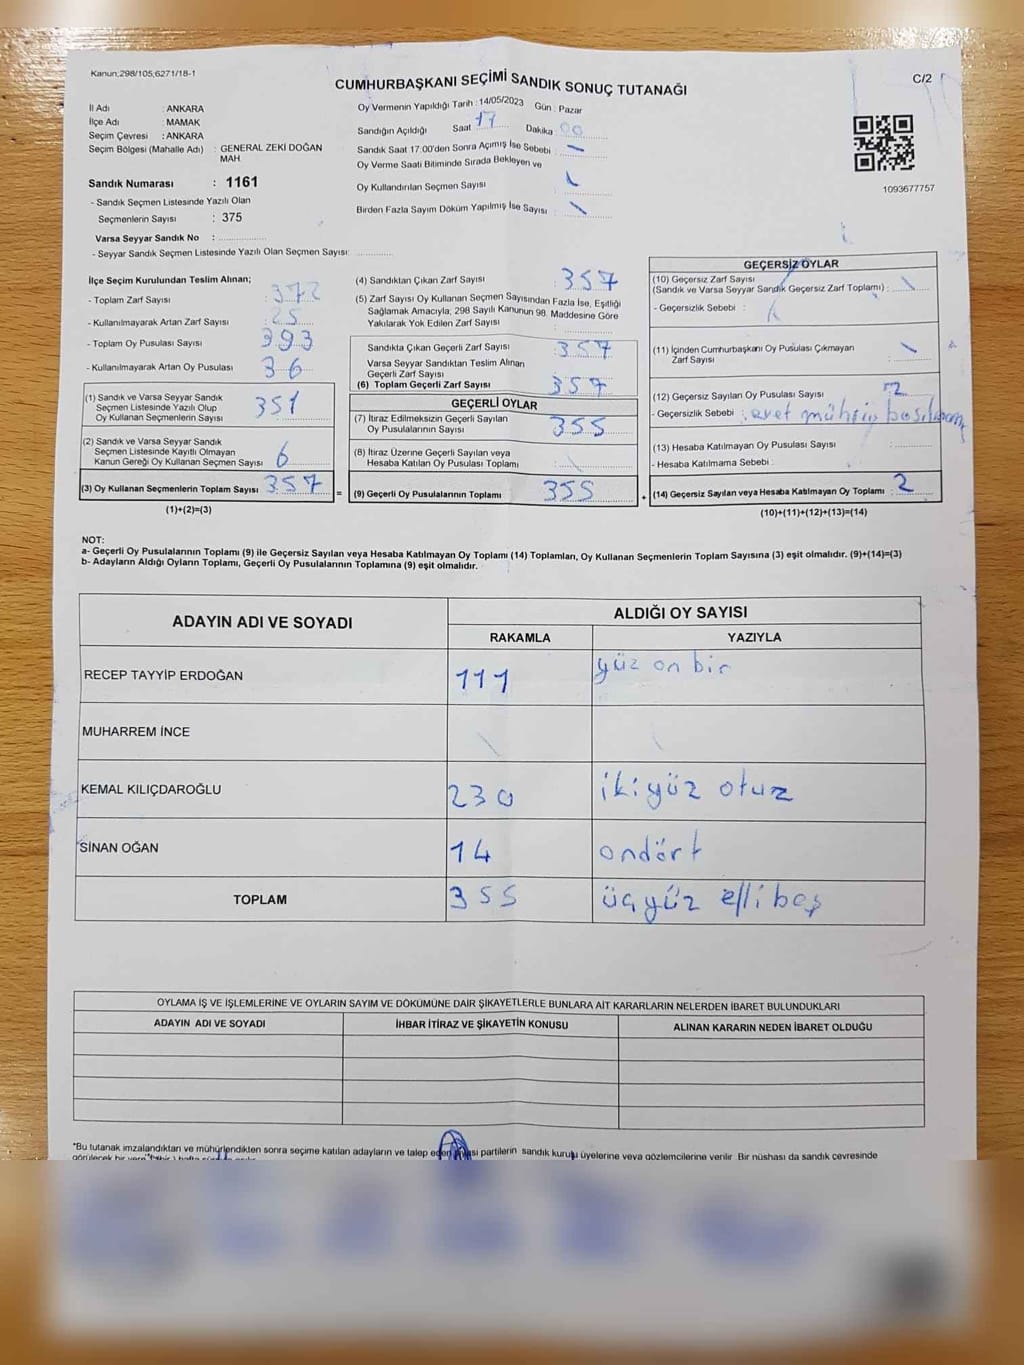 Kanun;298/105;6271/18-1
CUMHURBAŞKANI SEÇİMİ SANDIK SONUÇ TUTANAĞI
C/2
İl Adı : ANKARA
İlçe Adı : MAMAK
Seçim Çevresi : ANKARA
Seçim Bölgesi (Mahalle Adı) : GENERAL ZEKİ DOĞAN
MAH
Sandık Numarası : 1161
- Sandık Seçmen Listesinde Yazılı Olan
Seçmenlerin Sayısı : 375
Varsa Seyyar Sandık No :
- Seyyar Sandık Seçmen Listesinde Yazılı Olan Seçmen Sayısı:
Oy Vermenin Yapıldığı Tarih : 14/05/2023 Gün : Pazar
Sandığın Açıldığı Saat 17 Dakika 00
Sandık Saat 17:00'den Sonra Açımış İse Sebebi :
Oy Verme Saati Bitiminde Sırada Bekleyen ve
Oy Kullandırılan Seçmen Sayısı
Birden Fazla Sayım Döküm Yapılmış İse Sayısı
1093677757
İlçe Seçim Kurulundan Teslim Alınan;
- Toplam Zarf Sayısı : 372
- Kullanılmayarak Artan Zarf Sayısı : 25
- Toplam Oy Pusulası Sayısı 393
- Kullanılmayarak Artan Oy Pusulası 36
(1) Sandık ve Varsa Seyyar Sandık
Seçmen Listesinde Yazılı Olup
Oy Kullanan Seçmenlerin Sayısı 351
(2) Sandık ve Varsa Seyyar Sandık
Seçmen Listesinde Kayıtlı Olmayan
Kanun Gereği Oy Kullanan Seçmen Sayısı 6
(3) Oy Kullanan Seçmenlerin Toplam Sayısı 357
(1)+(2)=(3)
=
(4) Sandıktan Çıkan Zarf Sayısı 357
(5) Zarf Sayısı Oy Kullanan Seçmen Sayısından Fazla İse, Eşitliği
Sağlamak Amacıyla; 298 Sayılı Kanunun 98. Maddesine Göre
Yakılarak Yok Edilen Zarf Sayısı
Sandıkta Çıkan Geçerli Zarf Sayısı 357
Varsa Seyyar Sandıktan Teslim Alınan
Geçerli Zarf Sayısı
(6) Toplam Geçerli Zarf Sayısı 357
GEÇERLİ OYLAR
(7) İtiraz Edilmeksizin Geçerli Sayılan
Oy Pusulalarının Sayısı 355
(8) İtiraz Üzerine Geçerli Sayılan veya
Hesaba Katılan Oy Pusulası Toplamı
(9) Geçerli Oy Pusulalarının Toplamı 355
+
GEÇERSİZ OYLAR
(10) Geçersiz Zarf Sayısı
(Sandık ve Varsa Seyyar Sandık Geçersiz Zarf Toplamı) :
- Geçersizlik Sebebi :
(11) İçinden Cumhurbaşkanı Oy Pusulası Çıkmayan
Zarf Sayısı
(12) Geçersiz Sayılan Oy Pusulası Sayısı 2
- Geçersizlik Sebebi : evet mührün
(13) Hesaba Katılmayan Oy Pusulası Sayısı
- Hesaba Katılmama Sebebi :
(14) Geçersiz Sayılan veya Hesaba Katılmayan Oy Toplamı 2
(10)+(11)+(12)+(13)=(14)
NOT:
a- Geçerli Oy Pusulalarının Toplamı (9) ile Geçersiz Sayılan veya Hesaba Katılmayan Oy Toplamı (14) Toplamları, Oy Kullanan Seçmenlerin Toplam Sayısına (3) eşit olmalıdır. (9)+(14)=(3)
b- Adayların Aldığı Oyların Toplamı, Geçerli Oy Pusulalarının Toplamına (9) eşit olmalıdır.
ADAYIN ADI VE SOYADI
ALDIĞI OY SAYISI
RAKAMLA YAZIYLA
RECEP TAYYİP ERDOĞAN 111 yüz on bir
MUHARREM İNCE
KEMAL KILIÇDAROĞLU 230 ikiyüz otuz
SİNAN OĞAN 14 ondört
TOPLAM 355 üçyüz elli beş
OYLAMA İŞ VE İŞLEMLERİNE VE OYLARIN SAYIM VE DÖKÜMÜNE DAİR ŞİKAYETLERLE BUNLARA AİT KARARLARIN NELERDEN İBARET BULUNDUKLARI
ADAYIN ADI VE SOYADI İHBAR İTİRAZ VE ŞİKAYETİN KONUSU ALINAN KARARIN NEDEN İBARET OLDUĞU
*Bu tutanak imzalandıktan ve mühürlendikten sonra seçime katılan adayların ve talep eden siyasi partilerin sandık kurulu üyelerine veya gözlemcilerine verilir. Bir nüshası da sandık çevresinde